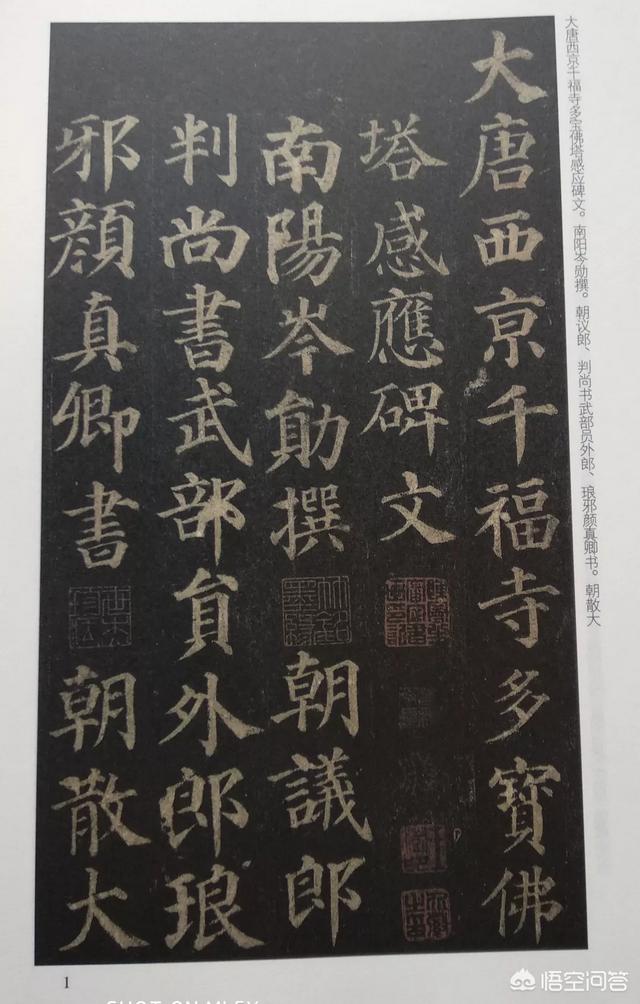 大唐西京千福寺多寶佛
塔感應碑文
南陽岑勛撰 朝議郎
判尚書武部員外郎琅
邪顏真卿書 朝散大
大唐西京千福寺多宝佛塔感应碑文。南阳岑勋撰。朝议郎、判尚书武部员外郎、琅邪颜真卿书。朝散大
1
悟空问答